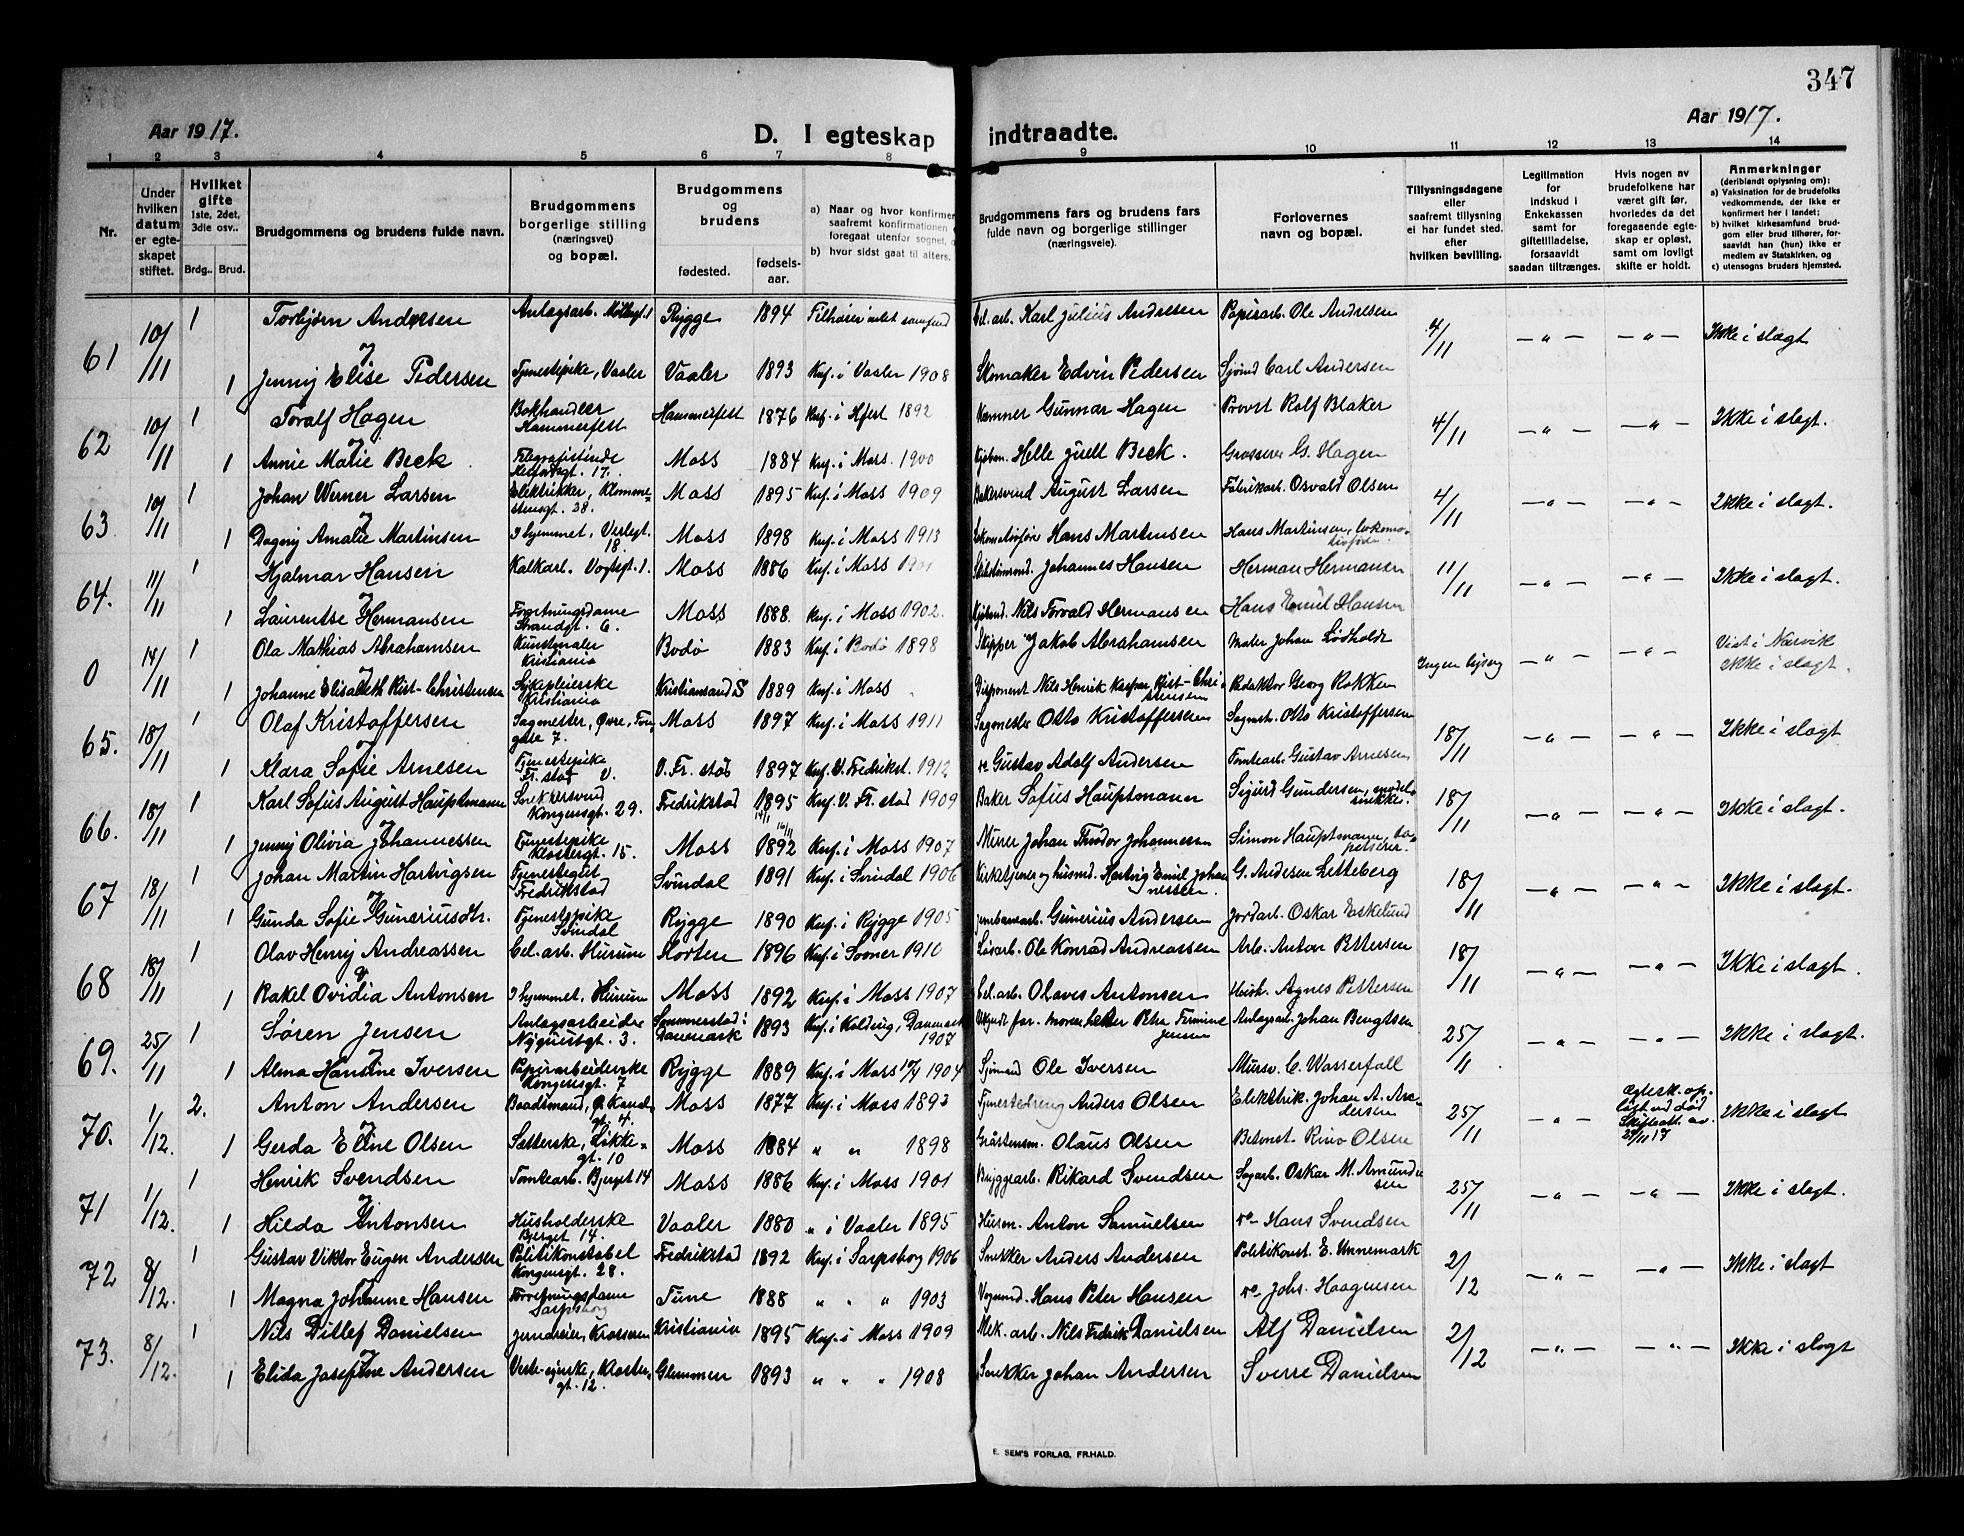 347
Aar 1917.
D. I egteskap indtraadte.
Aar 1917.
1 2 3 4 5 6 7 8 9 10 11 12 13 14
Nr.
Under hvilken datum er egteskapet stiftet.
Hvilket gifte 1ste, 2det, 3dle osv..
Brdg.. Brud.
Brudgommens og brudens fulde navn.
Brudgommens borgerlige stilling (næringsvei) og bopæl.
Brudgommens og brudens
fødested.
fødselsaar.
a) Naar og hvor konfirmer
saafremt konfirmationen
foregaat utenfor sognet,
b) hvor sidst gaat til alters.
Brudgommens fars og brudens fars fulde navn og borgerlige stillinger (næringsveie).
Forlovernes navn og bopæl.
Tillysningsdagene eller saafremt tillysning ei har fundet sted. efter hvilken bevilling.
Legitimation for indskud i Enkekassen samt for giftetilladelse, forsaavidt saadan tiltrænges.
Hvis nogen av brudefolkene har været gift før, hvorledes da det foregaaende egteskap er opløst, samt om lovligt skifte er holdt.
Anmerkninger
(deriblandt oplysning om):
a) Vaksination for de brudefolks vedkommende, der ikke er konfirmert her i landet;
b) hvilket kirkesamfund brudgom eller brud tilhører, forsaavidt han (hun) ikke er medlem av Statskirken, og
c) utensogns bruders hjemsted.
61 10/11 1 Torbjørn Andersen Anlagsarb. Rygge 1894 Karl Julius Andresen Papirarb. Ole Andresen 4/11 — „ — — „ — Ikke i slagt
1 Jenny Elise Pedersen Tjenestepike, Vaaler Vaaler 1893 Knf. i Vaaler 1908 Skomaker Edvin Pedersen Sjømd Carl Andersen
62 10/11 1 Toralf Hagen Bokhandler Hammerfest Hammerfest 1876 Knf. i Hfest 1892 Kæmner Gunnar Hagen Provst Rolf Blaker 4/11 — „ — — „ — Ikke i slagt.
1 Annie Marie Beck Telegrafistinde 17. Moss 1884 Knf. i Moss 1900 Helle Juell Beck. Grosserer G. Hagen
63 10/11 1 Johan Werner Larsen Elektrikker, 28. Moss 1895 Knf. i Moss 1909 Bakersvend August Larsen Fabrikarb. Osvald Olsen 4/11 — „ — — „ — Ikke i slagt.
1 Dagny Amalie Martinsen I hjemmet, Verlegt. 18. Moss 1898 Knf. i Moss 1913 Hans Martinsen Hans Martinsen, lokomotivfører.
64. 11/11 1 Hjalmar Hansen Kalkarb. Vogtsgt. 1. Moss 1886 Knf. i Moss Johannes Hansen Herman Hermansen 11/11 — „ — — „ — Ikke i slagt.
1 Laurentse Hermansen Forretningsdame Strandgt. 6. Moss 1888. Knf. i Moss 1902. Nils Torvald Hermansen Hans Emil Hansen
0 14/11 1 Ola Mathias Abrahamsen Kunstmaler Kristiania Bodø 1883 Knf. i Bodø 1898 Skipper Jakob Abrahamsen Maler Johan Lødholdt — „ — — „ — Viet i Narvik ikke i slagt.
1 Johanne Elisabeth Rist-Christensen Sykepleierske Kristiania Kristiansand S 1889 Knf. i Moss Disponent Nils Henrik Kasper Rist-Christensen Redaktør Georg Rokken
65. 18/11 1 Olaf Kristoffersen Sagmester, Øvre Moss 1897 Knf. i Moss 1911 Sagmester Otto Kristoffersen Sagmstr. Otto Kristoffersen 18/11 — „ — — „ — Ikke i slagt
1 Klara Sofie Arnesen Tjenestepike Fr. stad V. V. Fr. stad 1897 Knf. V. Fredrikst. 1912 Gustav Adolf Andersen Tomtearb. Gustav Arnesen
66. 18/11 1 Karl Sofus August Hauptmann Snekkersvend Kongensgt. 29. Fredrikstad 1895 Knf. V. Fr. stad 1909 Baker Sofus Hauptmann Sigurd Gundersen, modelsnikker. 18/11 — „ — — „ — Ikke i slagt.
1 Jenny Olivia Johannessen Tjenestepike Klostergt. 15. Moss 1892 Knf. i Moss 1907 Murer Johan Theodor Johannessen Simon Hauptmann, tapetserer.
67 18/11 1 Johan Martin Hartvigsen Tjenestegut Fredrikstad Svindal 1891 Knf. i Svindal 1906 Kirketjener og husmd. Hartvig Emil Johannessen. G. Andersen Letteberg 18/11 — „ — — „ — Ikke i slagt.
1 Gunda Sofie Guneriusdtr. Tjenestepike Svindal Rygge 1890 Knf. i Rygge 1905 Jernbanearb. Gunerius Andersen Jordarb. Oskar Eskelund
68 18/11 1 Olav Henry Andreassen Cel. arb. Hurum Horten 1896 Knf. i Sooner 1910 Ole Konrad Andreassen Arb. Anton Pettersen 18/11 — „ — — „ — Ikke i slagt.
1 Rakel Ovidia Antonsen I hjemmet, Hurum Moss 1892 Knf. i Moss 1907 Cel. arb. Olaves Antonsen Agnes Pettersen
69. 25/11 1 Søren Jensen Anlagsarbeider Nyquistgt. 3. Sommersted i Danmark 1893 Knf. i Kolding, Danmark 1907 Ukjendt far. Petra Jensen Anlagsar. Johan Bengtsen 25/11 — „ — — „ — Ikke i slagt.
1 Alma Hansine Iversen Papirarbeiderske Kongensgt. 7 Rygge 1889 Knf. i Moss 1904 Sjømand Ole Iversen Mursv. C. Wasserfall
70. 1/12. 2. Anton Andersen Baadsmand, Ø. Kanalgt. 4. Moss 1877 Knf. i Moss 1893 Anders Olsen Elektrik. Johan A. Andersen 25/11 — „ — Egtesk. opløst ved død Skifteatt. av 24/11 17 Ikke i slagt
1 Gerda Eline Olsen Sætterske, Løkkegt. 10 Moss 1884 „ „ 1898 Olaus Olsen Betonst. Rino Olsen
71 1/12. 1 Henrik Svendsen Tomtearb. Bjerget 14 Moss 1886 Knf. i Moss 1901 Bryggearb. Rikard Svendsen Sagarb. Oskar M. Amundsen 25/11 — „ — — „ — Ikke i slagt.
1 Hilda Antonsen Husholderske Bjerget 14. Vaaler 1880 „ i Vaaler 1895 Husm. Anton Samuelsen do Hans Svendsen
72 8/12. 1 Gustav Viktor Eugen Andersen Politikonstabel Kongensgt. 28. Fredrikstad 1892 Knf. i Sarpsborg 1906 Snekker Anders Andersen Politikonst. E. Unnemark 2/12 — „ — — „ — Ikke i slagt
1 Magna Johanne Hansen Forretningsdame Sarpsborg Tune 1888 „ „ „ 1903 Hans Peter Hansen do Johs. Haagensen
73. 8/12. 1 Nils Ditlef Danielsen Jerndreier, Krossern Kristiania 1895 Knf. i Moss 1909 Mek. arb. Nils Fredrik Danielsen Alf Danielsen 2/12 — „ — — „ — Ikke i slagt
1 Elida Josefine Andersen Klostergt. 12. Glemmen 1893 „ „ „ 1908 Snekker Johan Andersen Sverre Danielsen
E. SEM'S FORLAG, FR.HALD.